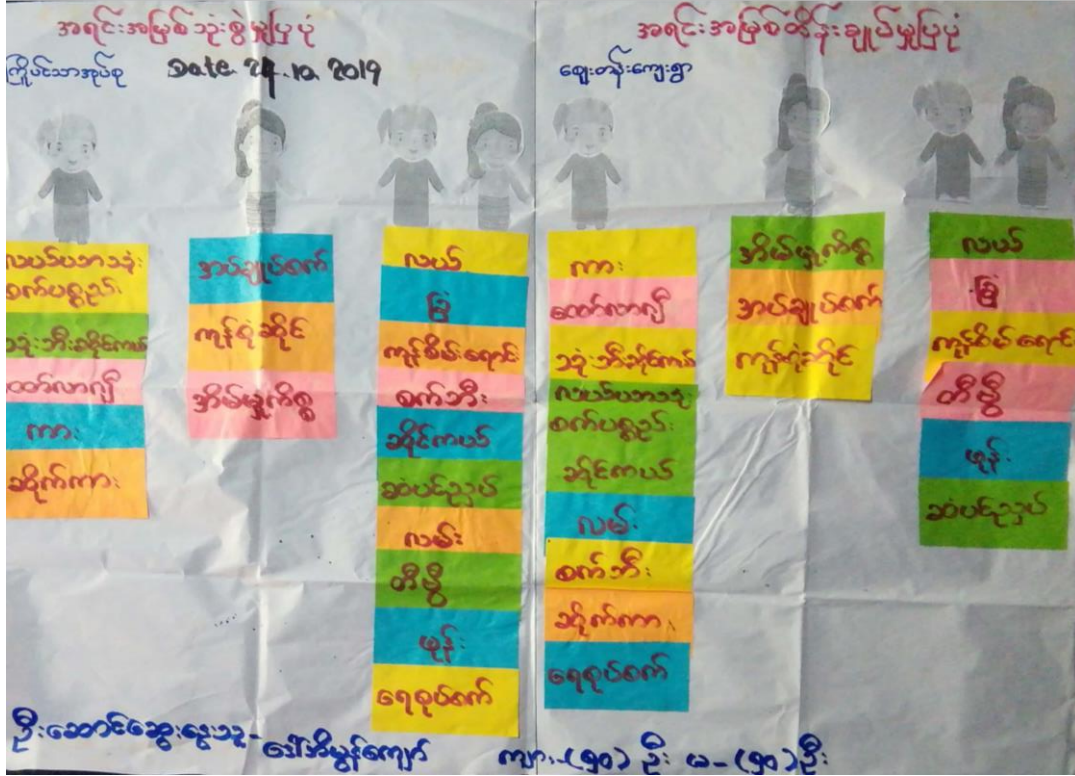 အရင်းအမြစ်သုံးစွဲမှုပြပုံ
ကြိုပင်သာအုပ်စု Date. 24.10.2019
လယ်ယာသုံး
စက်ပစ္စည်း
သုံးဘီးဆိုင်ကယ်
ထော်လာဂျီ
ကား
ဆိုက်ကား
အပ်ချုပ်စက်
ကုန်စုံဆိုင်
အိမ်မှုကိစ္စ
လယ်
ခြံ
ကုန်စိမ်းရောင်း
စက်ဘီး
ဆိုင်ကယ်
ဆံပင်ညှပ်
လမ်း
တီဗွီ
ဖုန်း
ရေစုပ်စက်
အရင်းအမြစ်ထိန်းချုပ်မှုပြပုံ
ဈေးတန်းကျေးရွာ
ကား
ထော်လာဂျီ
သုံးဘီးဆိုင်ကယ်
လယ်ယာသုံး
စက်ပစ္စည်း
ဆိုင်ကယ်
လမ်း
စက်ဘီး
ဆိုက်ကား
ရေစုပ်စက်
အိမ်မှုကိစ္စ
အပ်ချုပ်စက်
ကုန်စုံဆိုင်
လယ်
ခြံ
ကုန်စိမ်းရောင်း
တီဗွီ
ဖုန်း
ဆံပင်ညှပ်
ဦးဆောင်ဆွေးနွေးသူ - ဒေါ်အိမွန်ကျော် ကျား-(၅၀) ဦး မ-(၅၀)ဦး